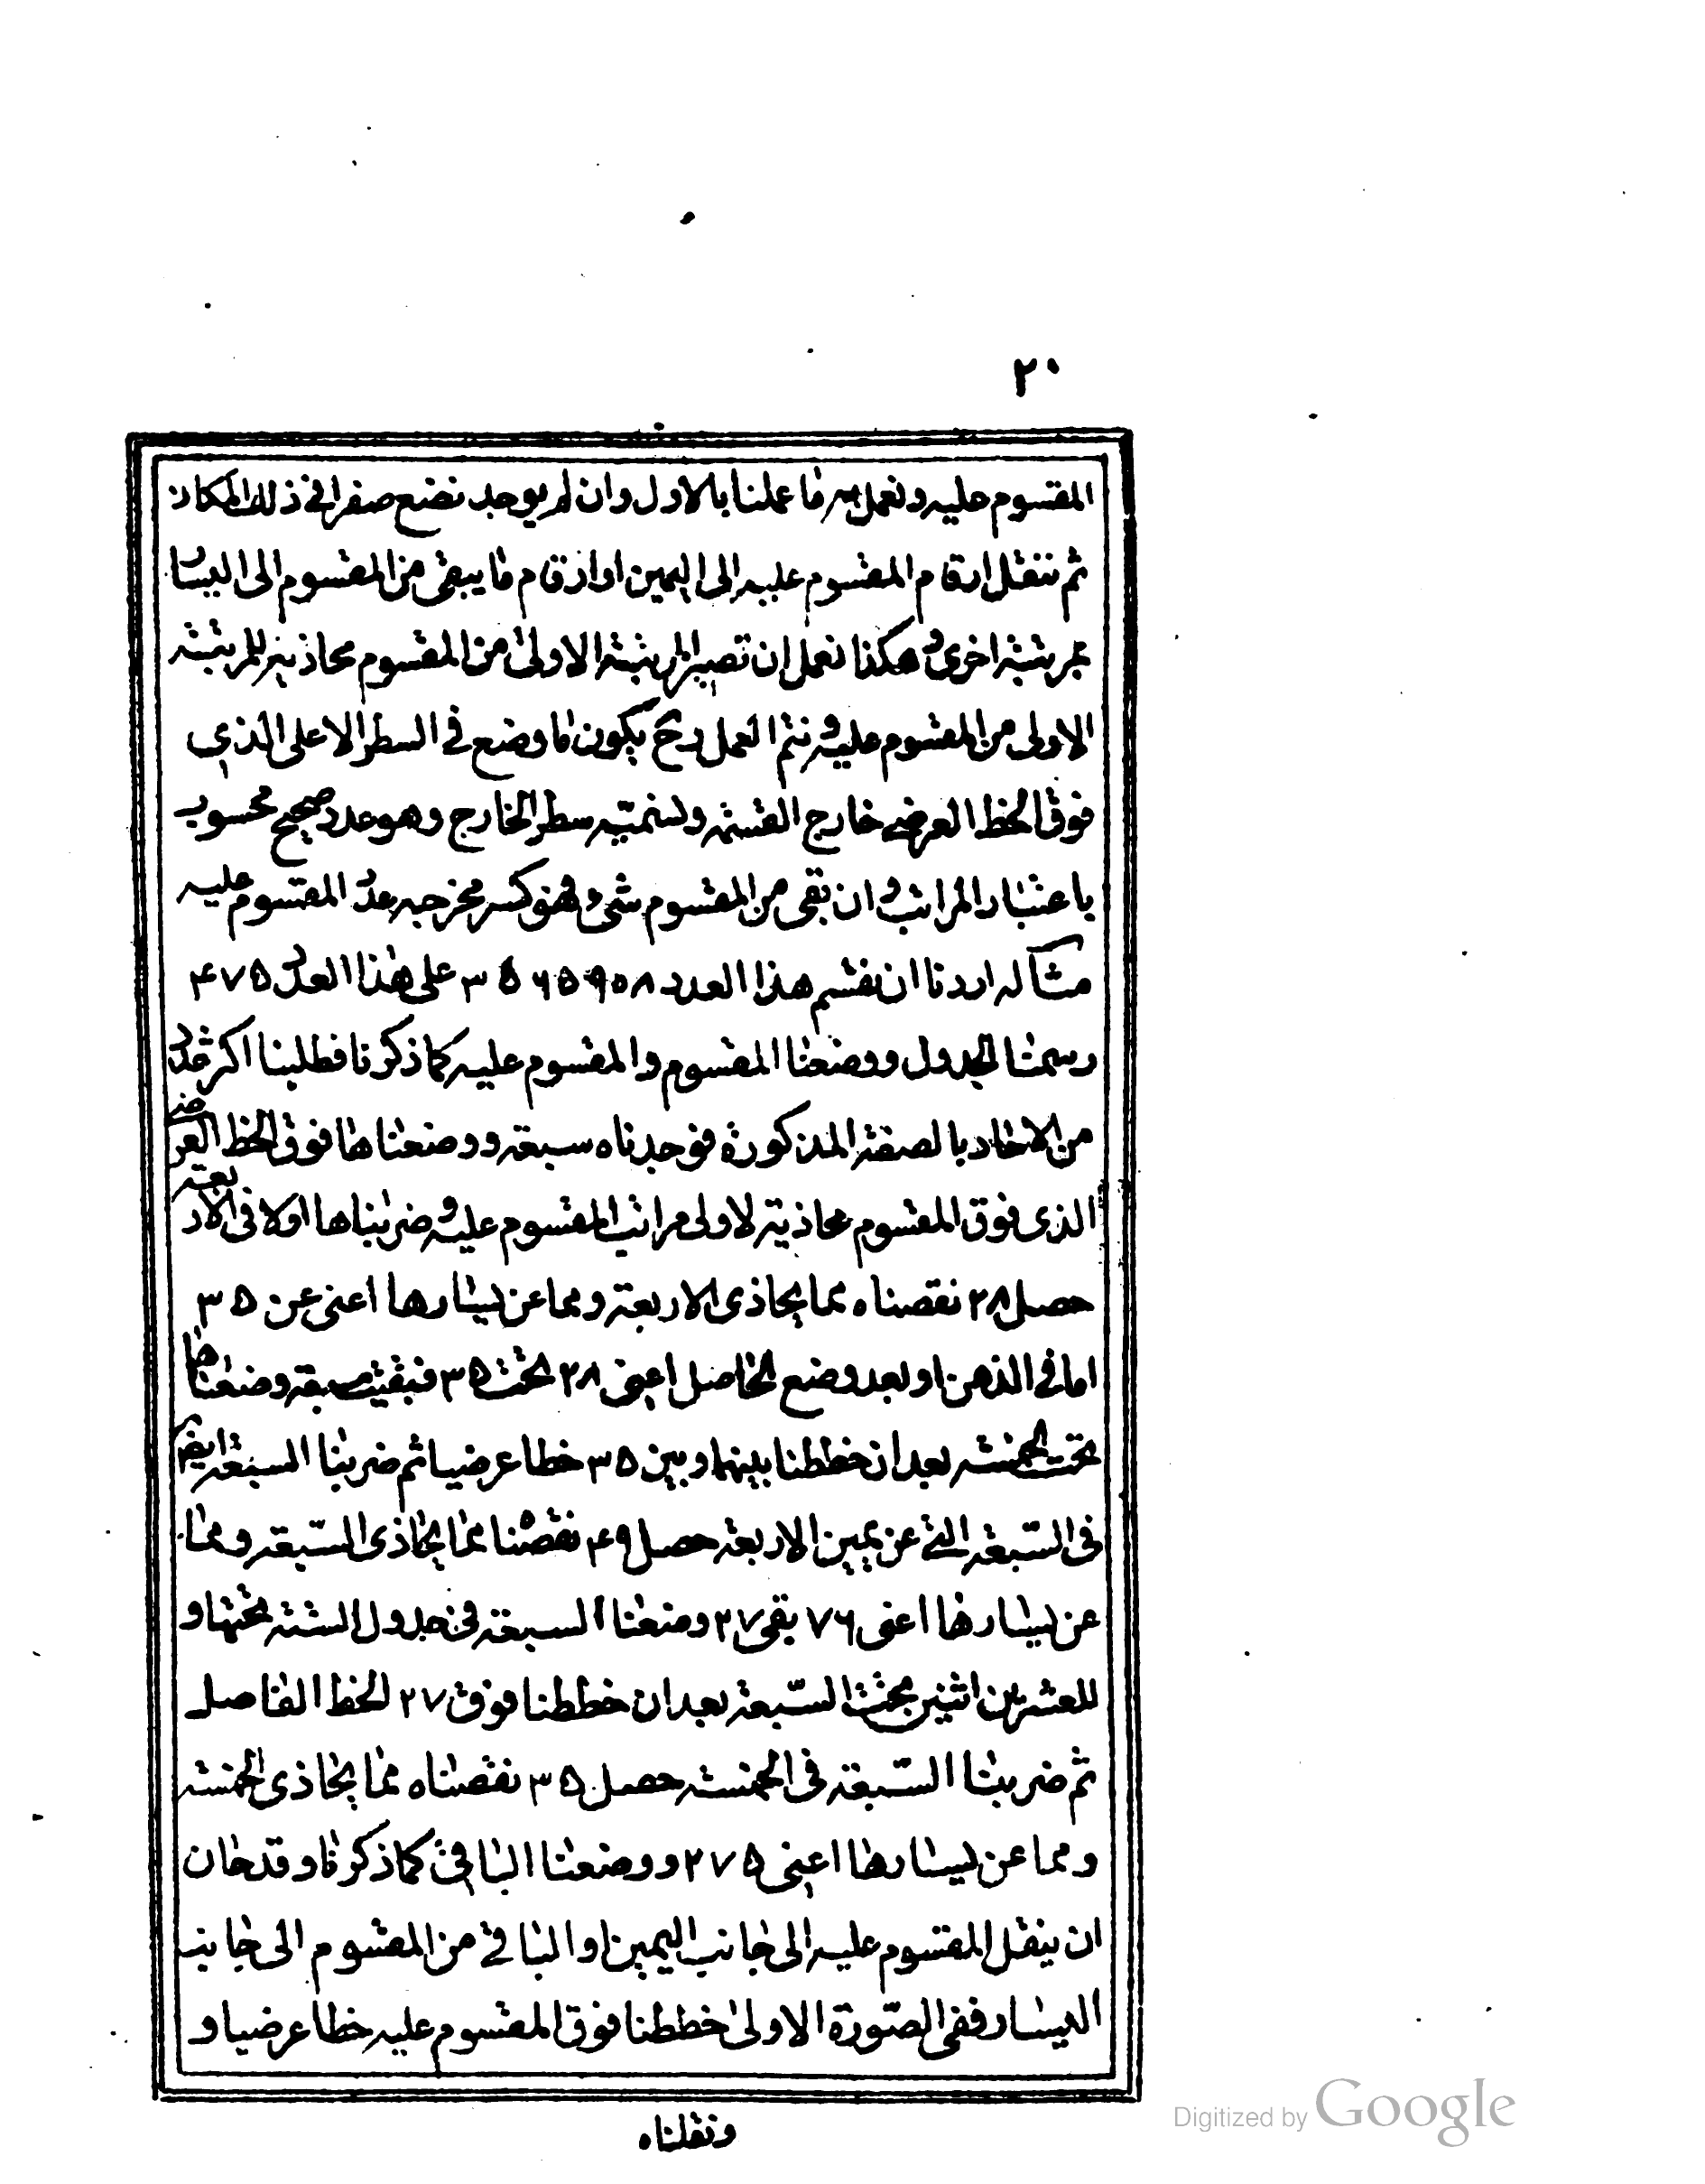 ٢٠
المقسوم عليه ونعمل به ما عملنا بالاول وان لم يوجد نضع صفرا فى ذلك المكان
ثم ننقل ارقام المقسوم عليه الى اليمين او ارقام ما يبقى من المقسوم الى اليسار
بمرتبة اخرى وهكذا نعمل ان تصير المرتبة الاولى من المقسوم محاذية للمرتبة
الاولى من المقسوم عليه ونتم العمل وح يكون ما وضع فى السطر الاعلى الذى
فوق الخط العرضى خارج القسمة ولنسميه سطر الخارج وهو عدد صحيح محسوب
باعتبار المراتب وان بقى من المقسوم شئ فهو كسر مخرجه عدد المقسوم عليه
مثاله اردنا ان نقسم هذا العدد ٣٥٦٥٩٠٨ على هذا العدد ٤٧٥
رسمنا الجدول ووضعنا المقسوم والمقسوم عليه كما ذكرنا فطلبنا اكثر عدد
من الاحاد بالصفة المذكورة فوجدناه سبعة ووضعناها فوق الخط العرضى
الذى فوق المقسوم محاذية لاولى مراتب المقسوم عليه وضربناها اولا فى الاربعة
حصل ٢٨ نقصناه مما يحاذى الاربعة ومما عن يسارها اعنى عن ٣٥
اما فى الذهن او بعد وضع الحاصل اعنى ٢٨ تحت ٣٥ فبقيت سبعة وضعناها
تحت الخمسة بعد ان خططنا بينها وبين ٣٥ خطا عرضيا ثم ضربنا السبعة ايضا
فى السبعة التى عن يمين الاربعة حصل ٤٩ نقصنا مما يحاذى السبعة ومما
عن يسارها اعنى ٧٦ بقى ٢٧ وضعنا السبعة فى جدول الستة تحتها و
للعشرين اثنين تحت السبعة بعد ان خططنا فوق ٢٧ الخط الفاصل
ثم ضربنا السبعة فى الخمسة حصل ٣٥ نقصناه مما يحاذى الخمسة
ومما عن يسارها اعنى ٢٧٥ ووضعنا الباقى كما ذكرنا وقد حان
ان ينقل المقسوم عليه الى جانب اليمين او الباقى من المقسوم الى جانب
اليسار ففى الصورة الاولى خططنا فوق المقسوم عليه خطا عرضيا و
ونقلناه
Digitized by Google